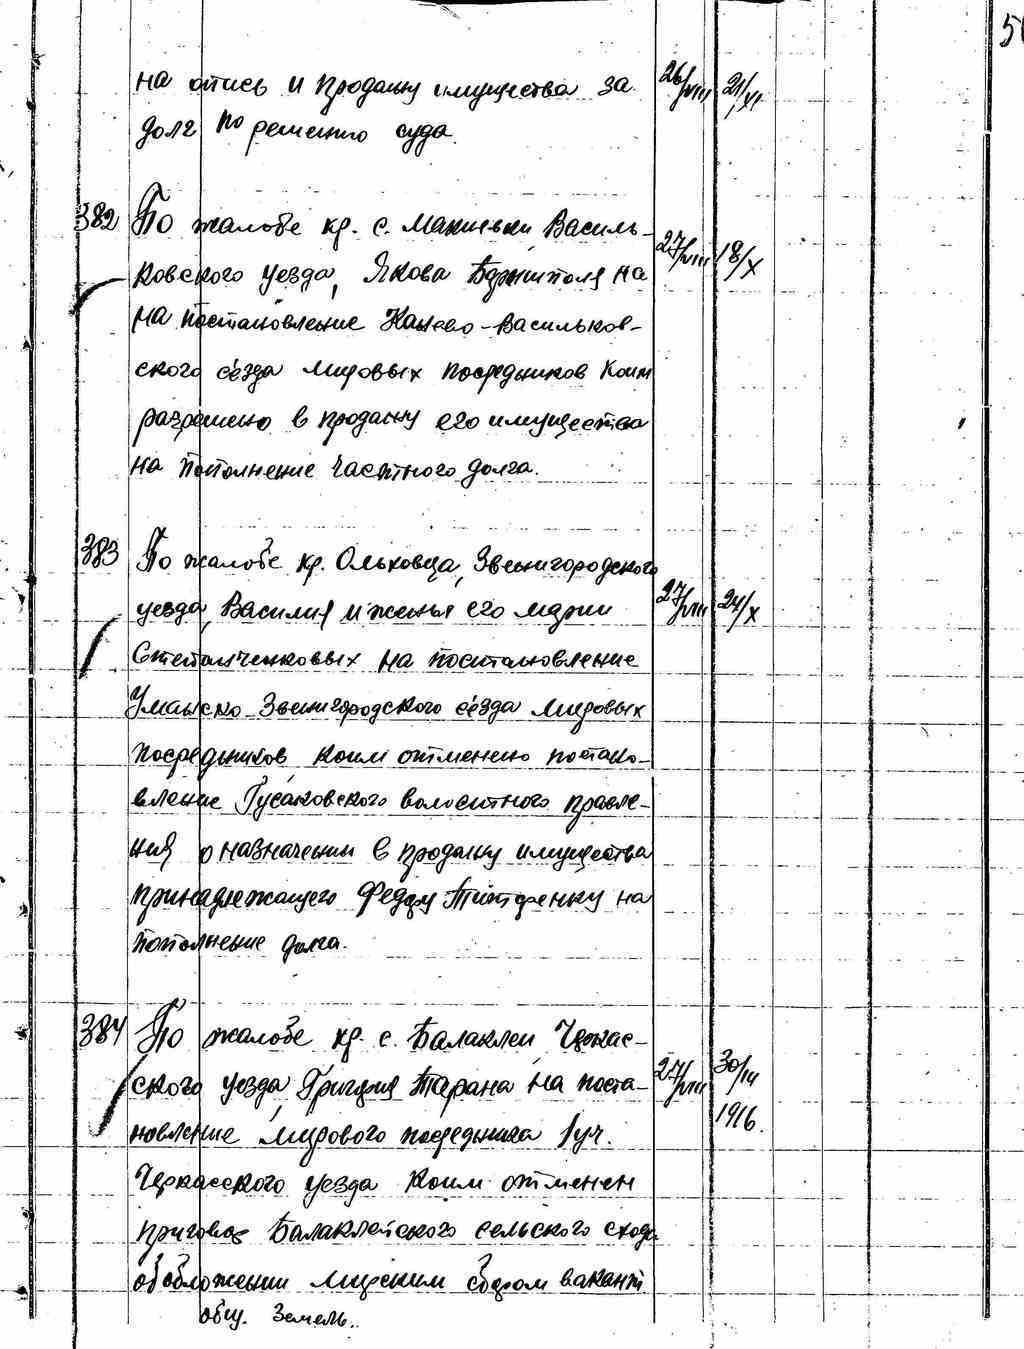 5
на опись и продажу имущества за 26/VIII 21/XI
долг по решению суда.
382 По жалобе кр. с. Макиевки Василь-
ковского уезда, Якова на 27/VIII 18/X
на постановление Канево-Васильков-
ского сьезда мировых посредников коим
разрешено в продажу его имущества
на пополнение частного долга.
383 По жалобе кр. Ольховца, Звенигородского
уезда, Василия и жены его Марии 27/VIII 24/X
Степанченковых на постановление
Уманско-Звенигородского сьезда мировых
посредников коим отменено постано-
вление Гусаковского волостного правле-
ния о назначении в продажу имущества
принадлежащего Федору Титаренку на
пополнение долга.
384 По жалобе кр. с. Балаклеи Черкас-
ского уезда, Григория Тарана на поста- 27/VIII 30/III
новление мирового посредника 1 уч. 1916.
Черкасского уезда коим отменен
приговор Балаклейского сельского схода
об обложении мирским сбором вакант
общ. земель.